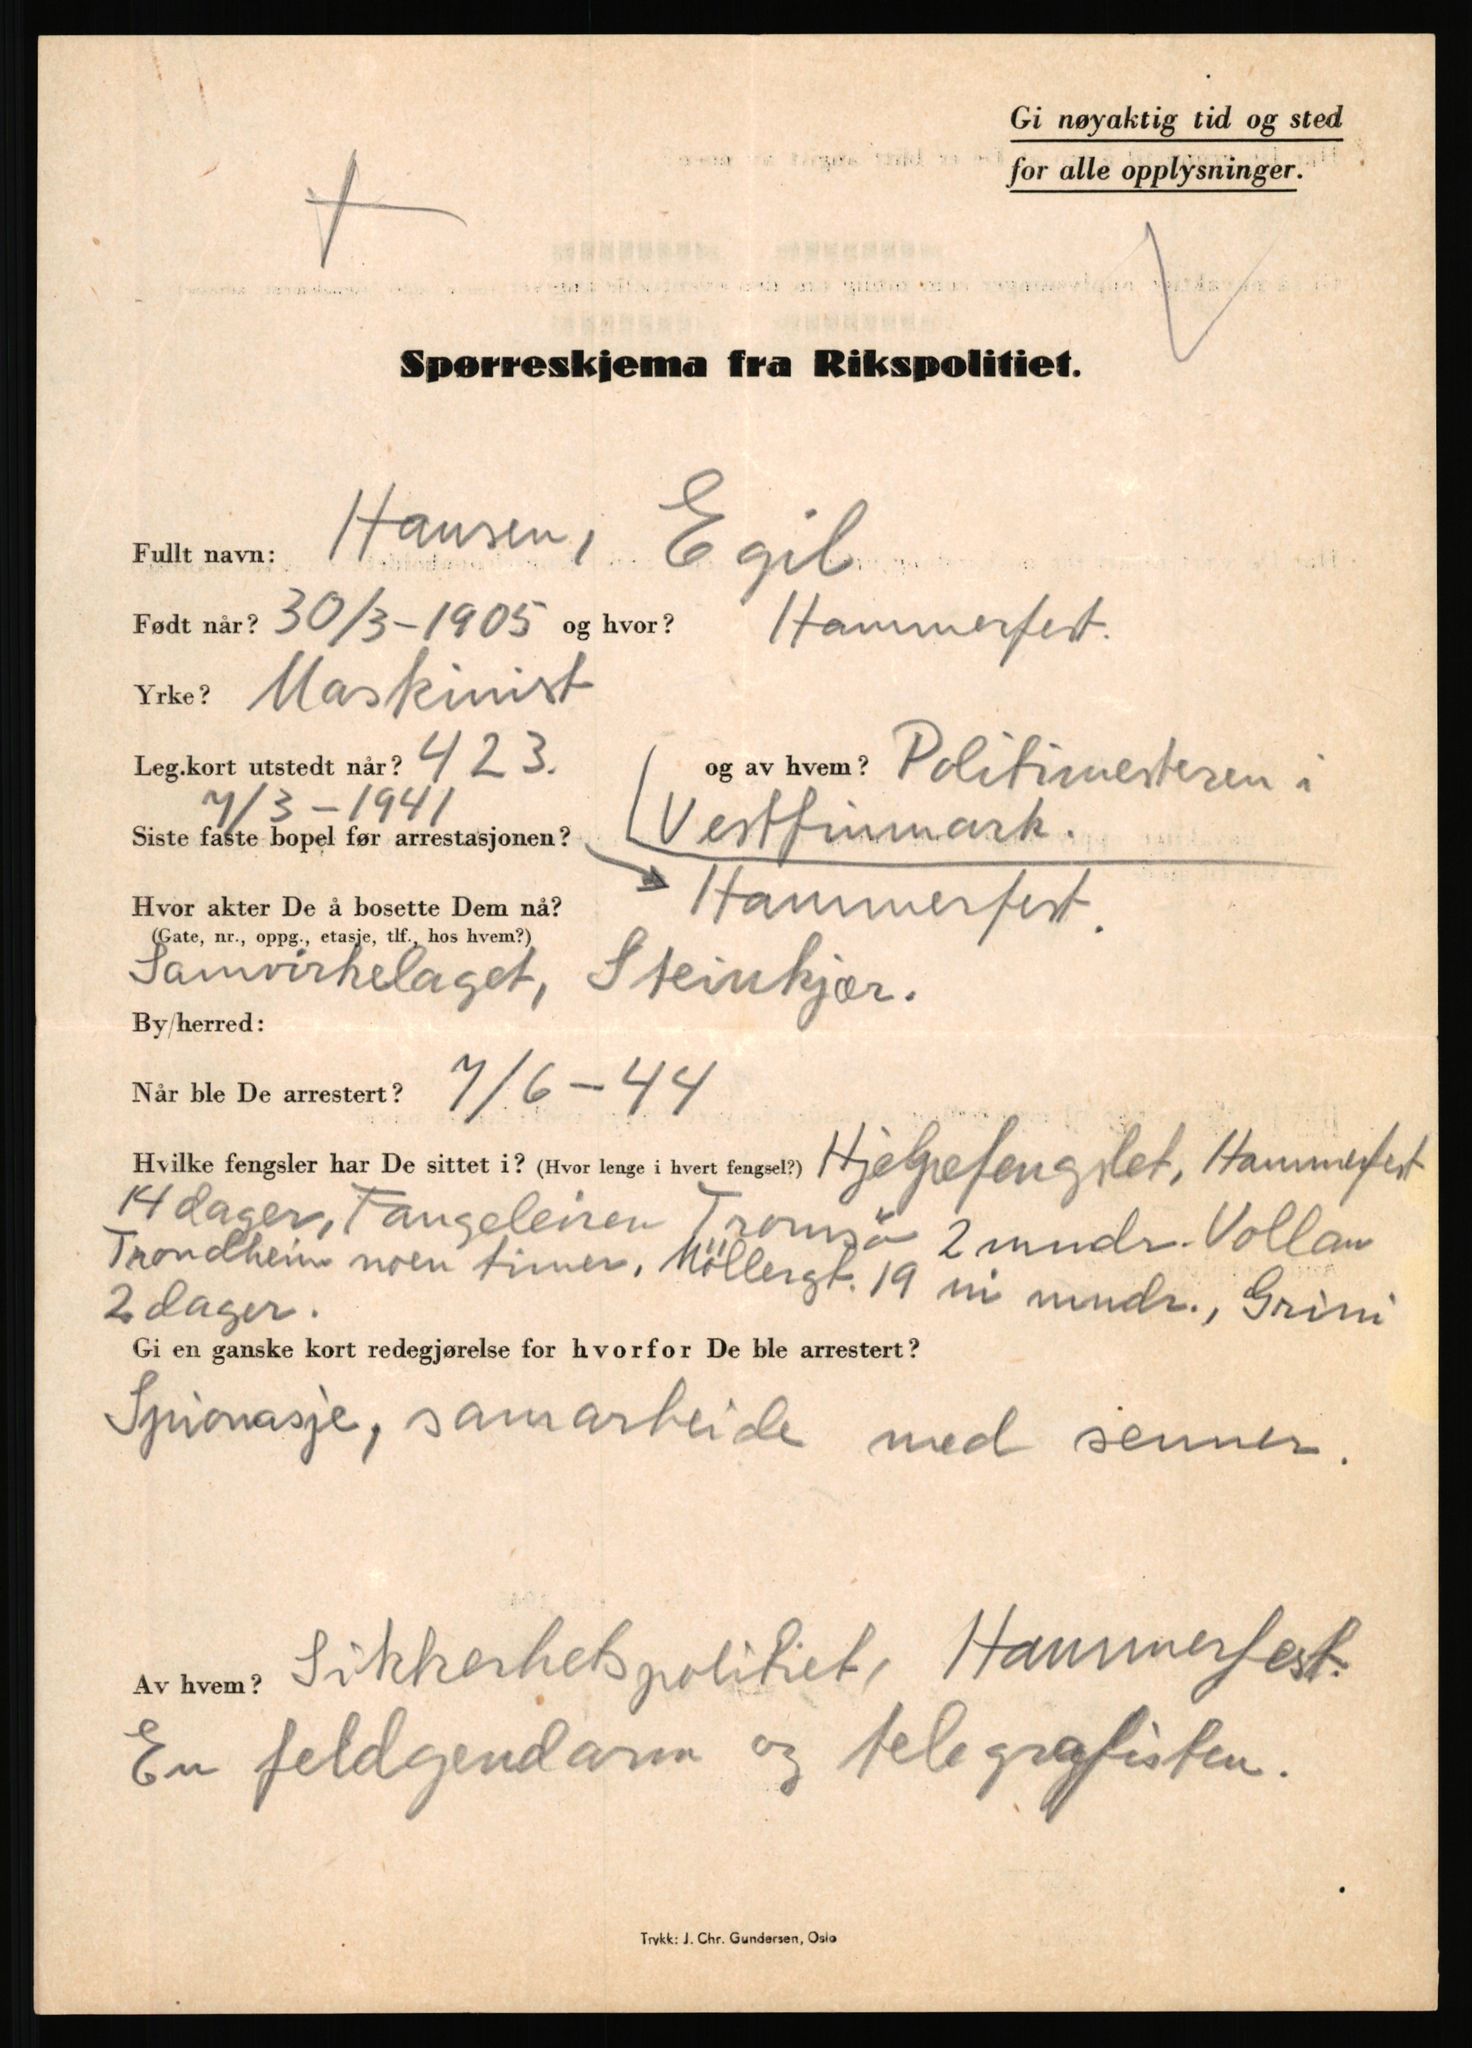 Gi nøyaktig tid og sted
for alle opplysninger.
Spørreskjema fra Rikspolitiet.
Fullt navn: Hansen, Egil
Født når? 30/3-1905 og hvor? Hammerfest.
Yrke? Maskinist
Leg.kort utstedt når? 423. og av hvem? Politimesteren i
7/3-1941 Vestfinmark.
Siste faste bopel før arrestasjonen?
Hammerfest.
Hvor akter De å bosette Dem nå?
(Gate, nr., oppg., etasje, tlf., hos hvem?)
Samvirkelaget, Steinkjær.
By/herred:
Når ble De arrestert? 7/6-44
Hvilke fengsler har De sittet i? (Hvor lenge i hvert fengsel?) Hjelpefengslet, Hammerfest
14 dager, Fangeleiren Tromsö 2 mndr. Vollan
Trondheim noen timer, Möllergt. 19 ni mndr., Grini
2 dager.
Gi en ganske kort redegjørelse for hvorfor De ble arrestert?
Spionasje, samarbeide med senner.
Av hvem? Sikkerhetspolitiet, Hammerfest.
En feldgendarm og telegrafisten.
Trykk: J. Chr. Gundersen, Oslo